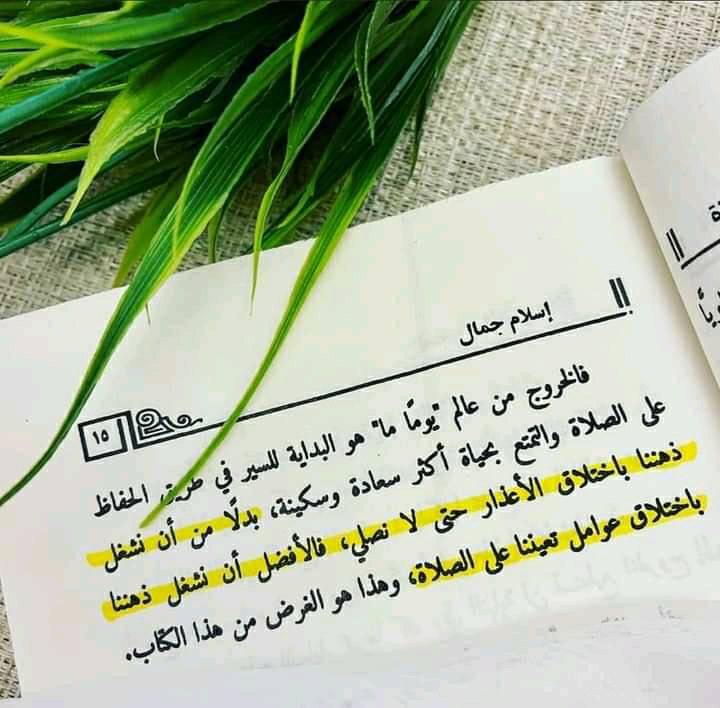 إسلام جمال
١٥
فالخروج من عالم "يومًا ما" هو البداية للسير في طريق الحفاظ
على الصلاة والتمتع بحياة أكثر سعادة وسكينة، بدلًا من أن نشغل
ذهننا باختلاق الأعذار حتى لا نصلي، فالأفضل أن نشغل ذهننا
باختلاق عوامل تعيننا على الصلاة، وهذا هو الغرض من هذا الكتاب.